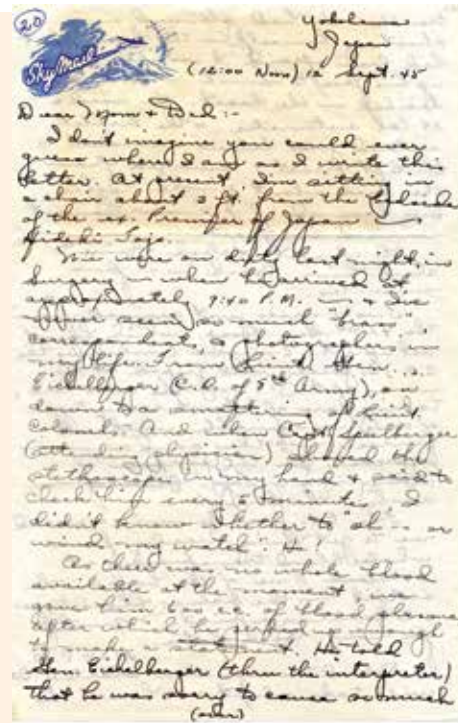 20
Sky Mail
Yokohama
Japan
(12:00 Noon) 12 Sept. 45
Dear Mom & Dad:-
I don't imagine you could ever
guess where I am as I write this
letter. At present, I'm sitting in
a chair about 3 ft. from the bedside
of the ex. Premier of Japan —
Hideki Tojo.
We were on duty last night, in
Surgery when he arrived at
approximately 9:40 P.M. — & I've
never seen so much "brass",
correspondents, & photographers in
my life. From Lieut. Gen.
Eichelberger (C.O. of 8th Army), on
down to a smattering of Lieut.
Colonels. And when Capt.
(attending physician) the
stethoscope in my hand & said to
check him every 5 minutes, I
didn't know whether to "sh-- or
wind my watch". Ha!
As there was no whole blood
available at the moment, we
gave him 600 cc. of blood plasma
after which he perked up enough
to make a statement. He told
Gen. Eichelberger (thru the interpreter)
that he was sorry to cause so much
(over)